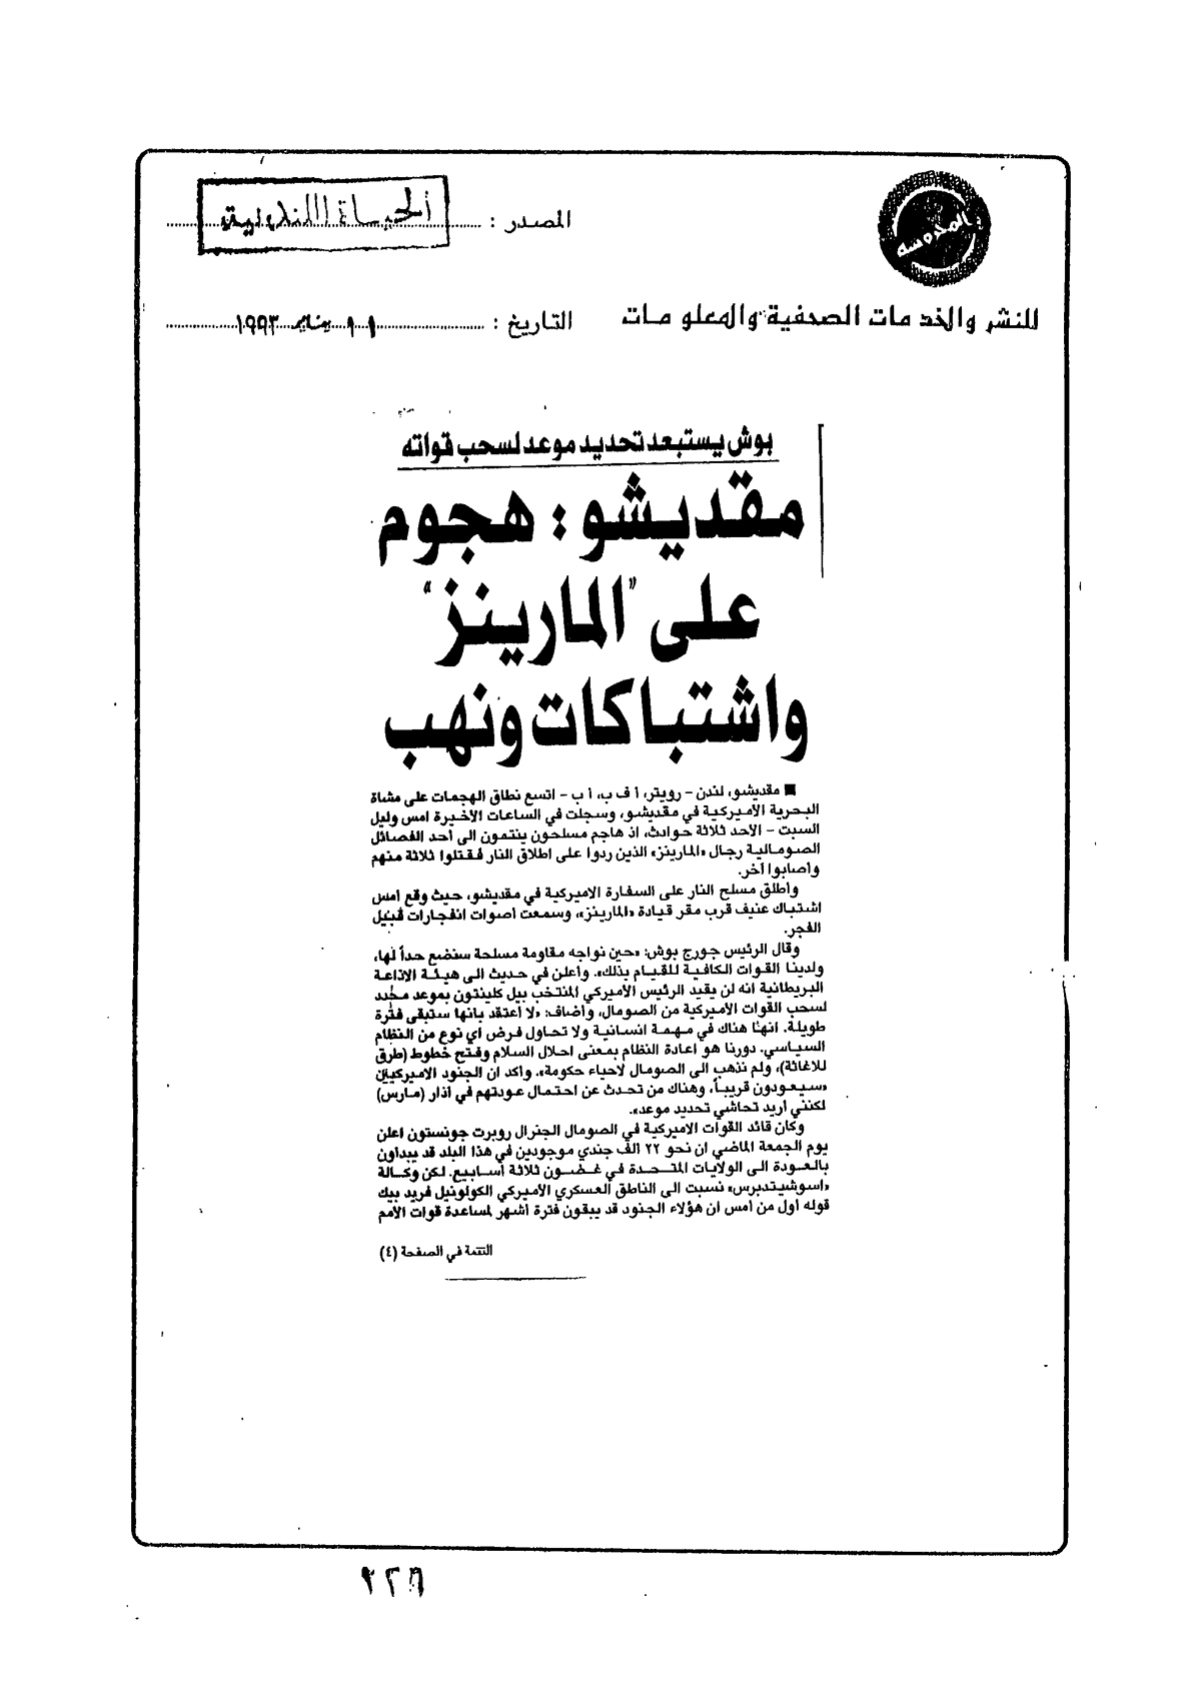 المصدر : الحياة اللندنية
للنشر والخدمات الصحفية والمعلومات
التاريخ : ١١ يناير ١٩٩٣
بوش يستبعد تحديد موعد لسحب قواته
مقديشو : هجوم
على "المارينز"
واشتباكات ونهب
■ مقديشو، لندن – رويتر، أ ف ب، أ ب – اتسع نطاق الهجمات على مشاة
البحرية الاميركية في مقديشو، وسجلت في الساعات الأخيرة امس وليل
السبت – الاحد ثلاثة حوادث، اذ هاجم مسلحون ينتمون الى أحد الفصائل
الصومالية رجال «المارينز» الذين ردوا على اطلاق النار فقتلوا ثلاثة منهم
وأصابوا آخر.
واطلق مسلح النار على السفارة الاميركية في مقديشو، حيث وقع امس
اشتباك عنيف قرب مقر قيادة «المارينز»، وسمعت اصوات انفجارات قبيل
الفجر.
وقال الرئيس جورج بوش: «حين نواجه مقاومة مسلحة سنضع حداً لها،
ولدينا القوات الكافية للقيام بذلك». وأعلن في حديث الى هيئة الاذاعة
البريطانية انه لن يقيد الرئيس الأميركي المنتخب بيل كلينتون بموعد محدد
لسحب القوات الأميركية من الصومال، وأضاف: «لا أعتقد بانها ستبقى فترة
طويلة. انها هناك في مهمة انسانية ولا تحاول فرض اي نوع من النظام
السياسي. دورنا هو اعادة النظام بمعنى احلال السلام وفتح خطوط (طرق
للاغاثة)، ولم نذهب الى الصومال لاحياء حكومة». واكد ان الجنود الاميركيين
«سيعودون قريباً، وهناك من تحدث عن احتمال عودتهم في آذار (مارس)
لكنني أريد تحاشي تحديد موعد».
وكان قائد القوات الاميركية في الصومال الجنرال روبرت جونستون اعلن
يوم الجمعة الماضي ان نحو ٢٢ الف جندي موجودين في هذا البلد قد يبداون
بالعودة الى الولايات المتحدة في غضون ثلاثة أسابيع. لكن وكالة
«اسوشيتدبرس» نسبت الى الناطق العسكري الأميركي الكولونيل فريد بيك
قوله أول من أمس ان هؤلاء الجنود قد يبقون فترة أشهر لمساعدة قوات الأمم
التتمة في الصفحة (٤)